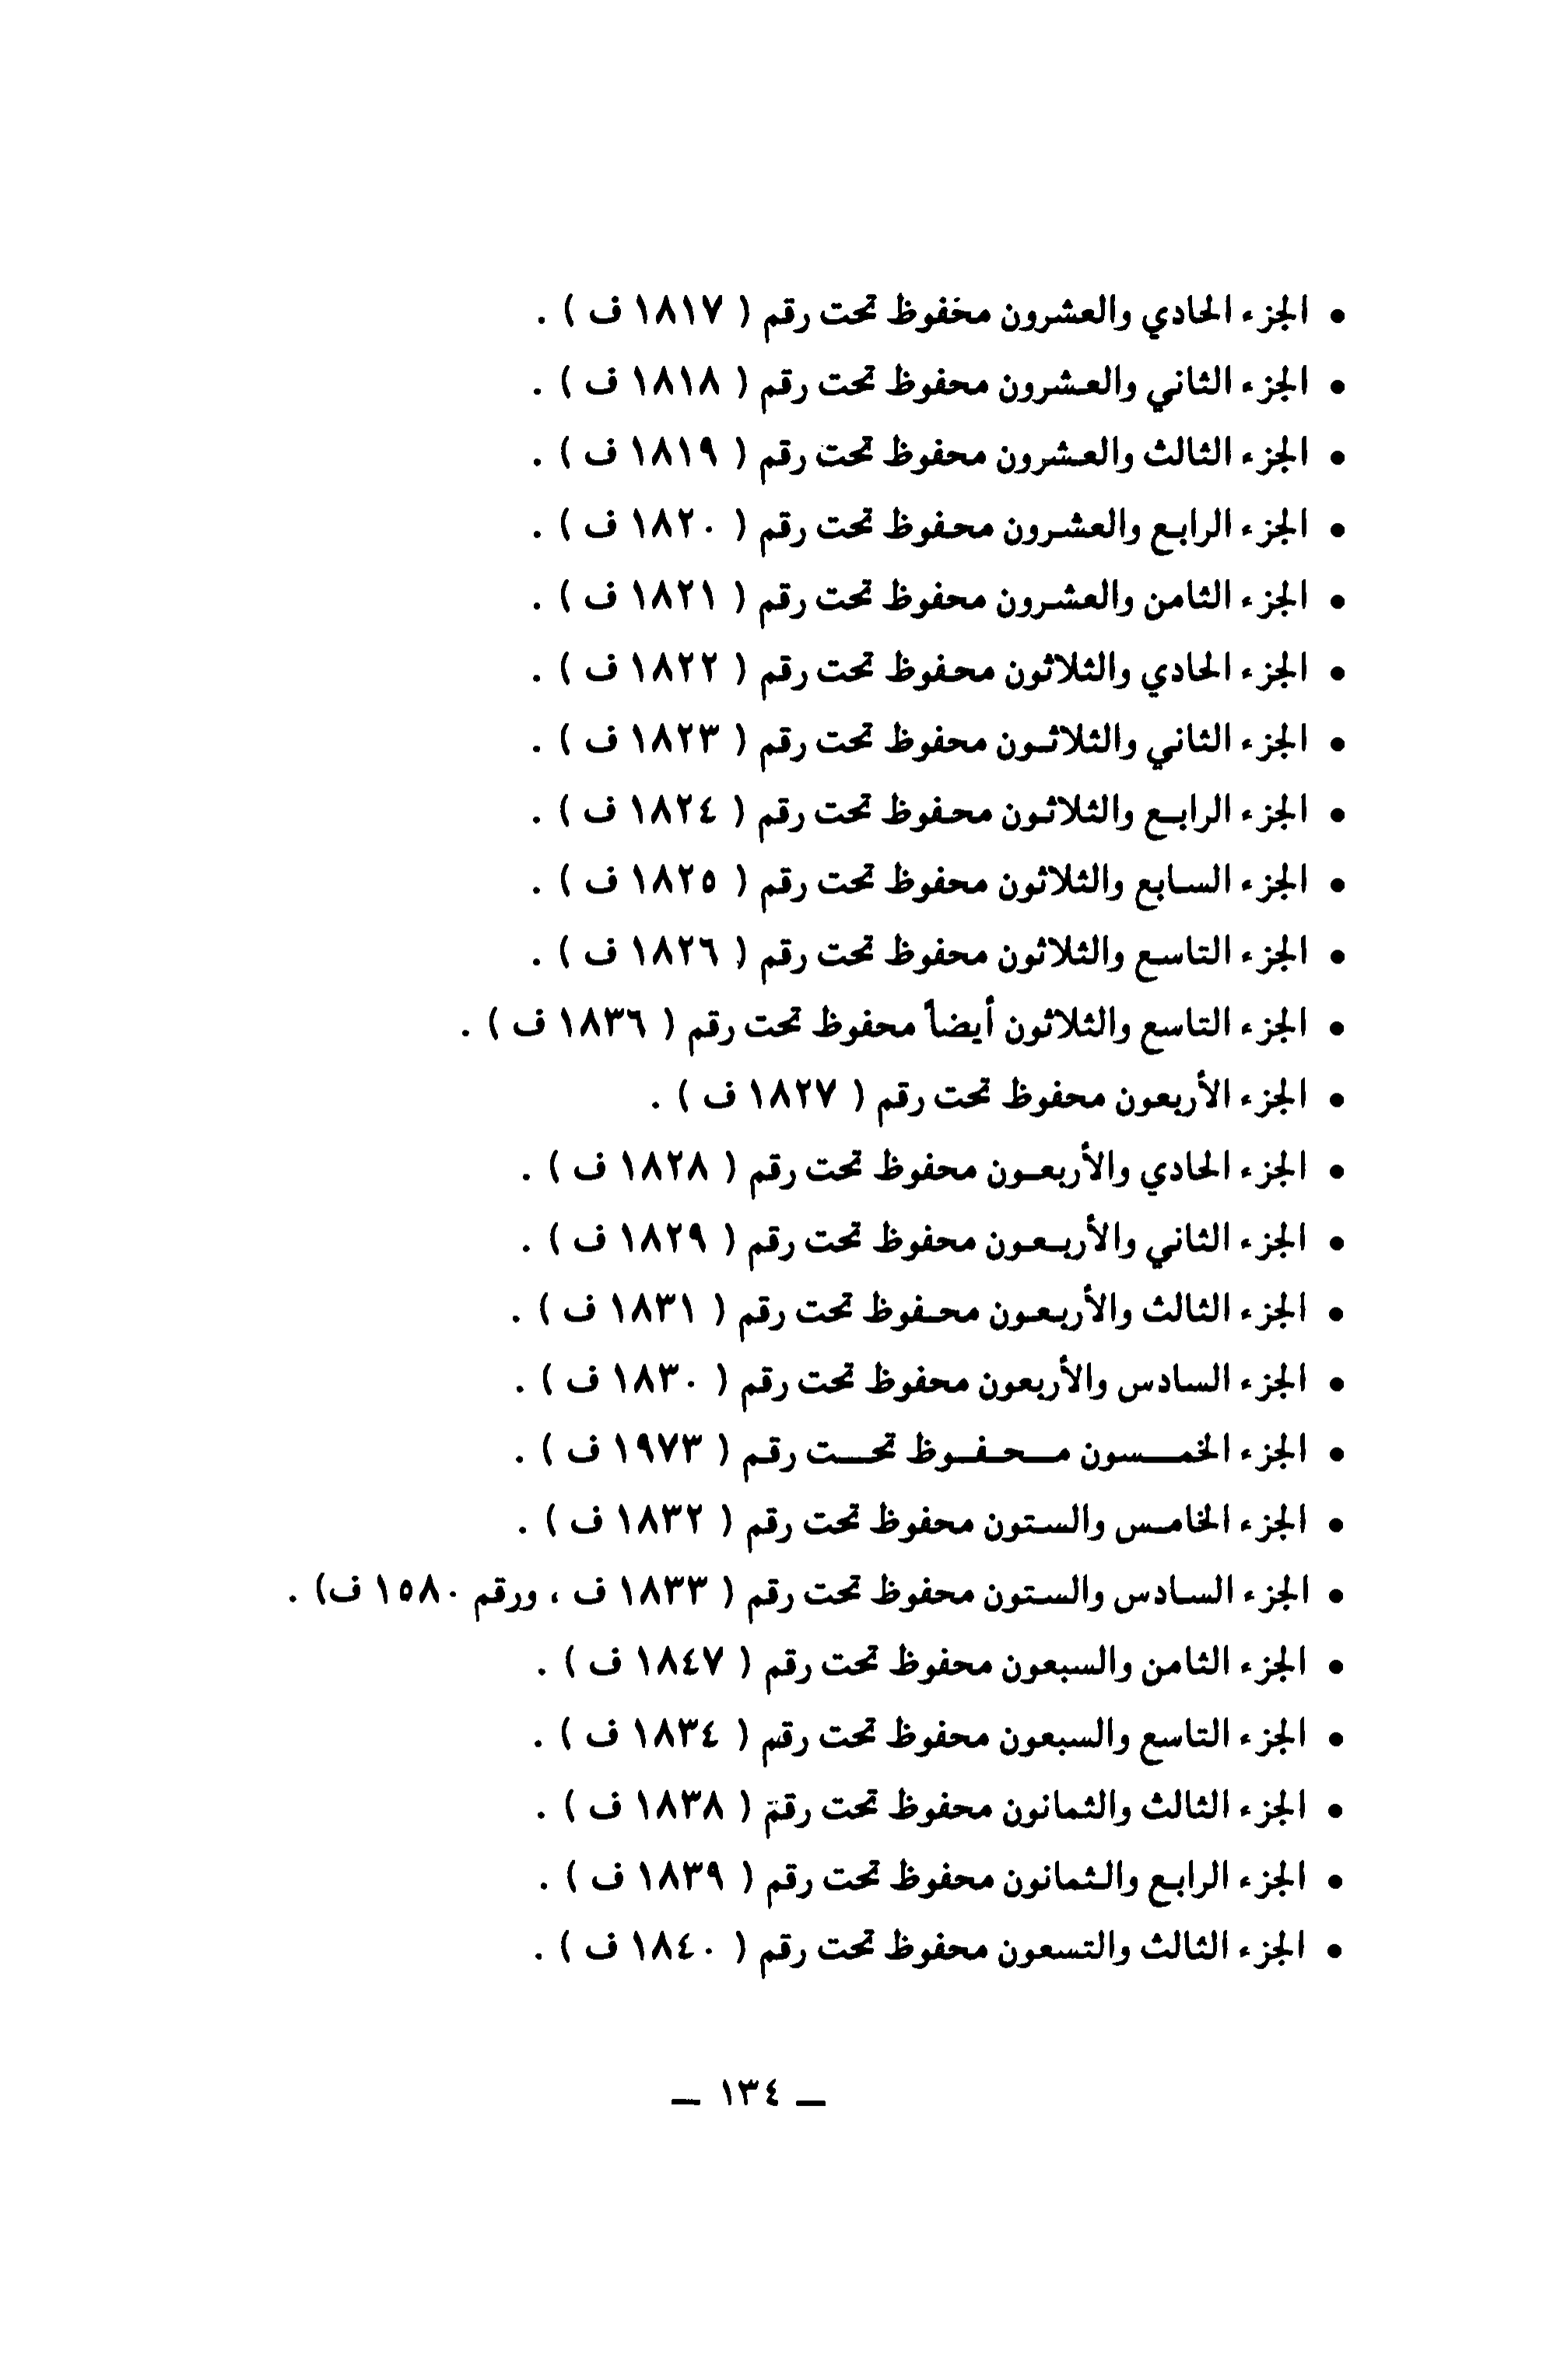 • الجزء الحادي والعشرون محفوظ تحت رقم ( ١٨١٧ ف ) .
• الجزء الثاني والعشرون محفوظ تحت رقم ( ١٨١٨ ف ) .
• الجزء الثالث والعشرون محفوظ تحت رقم ( ١٨١٩ ف ) .
• الجزء الرابع والعشرون محفوظ تحت رقم ( ١٨٢٠ ف ) .
• الجزء الثامن والعشرون محفوظ تحت رقم ( ١٨٢١ ف ) .
• الجزء الحادي والثلاثون محفوظ تحت رقم ( ١٨٢٢ ف ) .
• الجزء الثاني والثلاثون محفوظ تحت رقم ( ١٨٢٣ ف ) .
• الجزء الرابع والثلاثون محفوظ تحت رقم ( ١٨٢٤ ف ) .
• الجزء السابع والثلاثون محفوظ تحت رقم ( ١٨٢٥ ف ) .
• الجزء التاسع والثلاثون محفوظ تحت رقم ( ١٨٢٦ ف ) .
• الجزء التاسع والثلاثون أيضاً محفوظ تحت رقم ( ١٨٣٦ ف ) .
• الجزء الأربعون محفوظ تحت رقم ( ١٨٢٧ ف ) .
• الجزء الحادي والأربعون محفوظ تحت رقم ( ١٨٢٨ ف ) .
• الجزء الثاني والأربعون محفوظ تحت رقم ( ١٨٢٩ ف ) .
• الجزء الثالث والأربعون محفوظ تحت رقم ( ١٨٣١ ف ) .
• الجزء السادس والأربعون محفوظ تحت رقم ( ١٨٣٠ ف ) .
• الجزء الخمسون محفوظ تحت رقم ( ١٩٧٣ ف ) .
• الجزء الخامس والستون محفوظ تحت رقم ( ١٨٣٢ ف ) .
• الجزء السادس والستون محفوظ تحت رقم ( ١٨٣٣ ف ، ورقم ١٥٨٠ ف) .
• الجزء الثامن والسبعون محفوظ تحت رقم ( ١٨٤٧ ف ) .
• الجزء التاسع والسبعون محفوظ تحت رقم ( ١٨٣٤ ف ) .
• الجزء الثالث والثمانون محفوظ تحت رقم ( ١٨٣٨ ف ) .
• الجزء الرابع والثمانون محفوظ تحت رقم ( ١٨٣٩ ف ) .
• الجزء الثالث والتسعون محفوظ تحت رقم ( ١٨٤٠ ف ) .
— ١٣٤ —